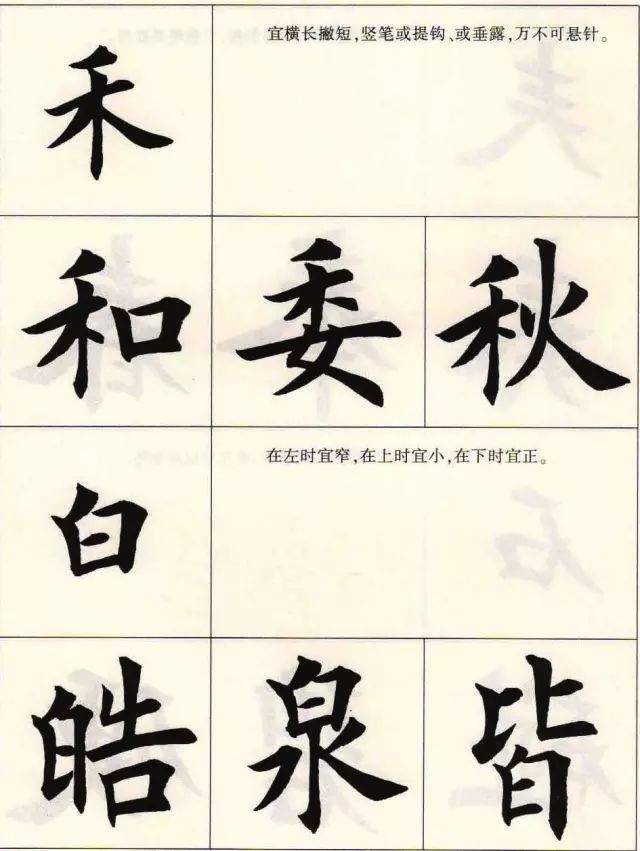 禾
宜横长撇短,竖笔或提钩、或垂露,万不可悬针。
和 委 秋
白
在左时宜窄,在上时宜小,在下时宜正。
皓 泉 皆